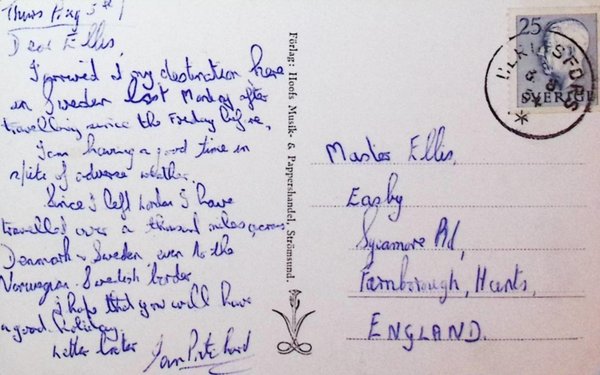 Thurs Aug 5th
Dear Ellis,
I arrived at my destination here
in Sweden last Monday after
travelling since the Friday before.
I am having a good time in
spite of adverse weather.
Since I left London I have
travelled over a thousand miles, across
Denmark & Sweden, even to the
Norwegian-Swedish border
I hope that you will have
a good holiday.
Letter later
Förlag: Hoofs Musik- & Pappershandel, Strömsund.
25
SVERIGE
Master Ellis,
Easby
Sycamore Rd,
Farnborough, Hants,
ENGLAND.